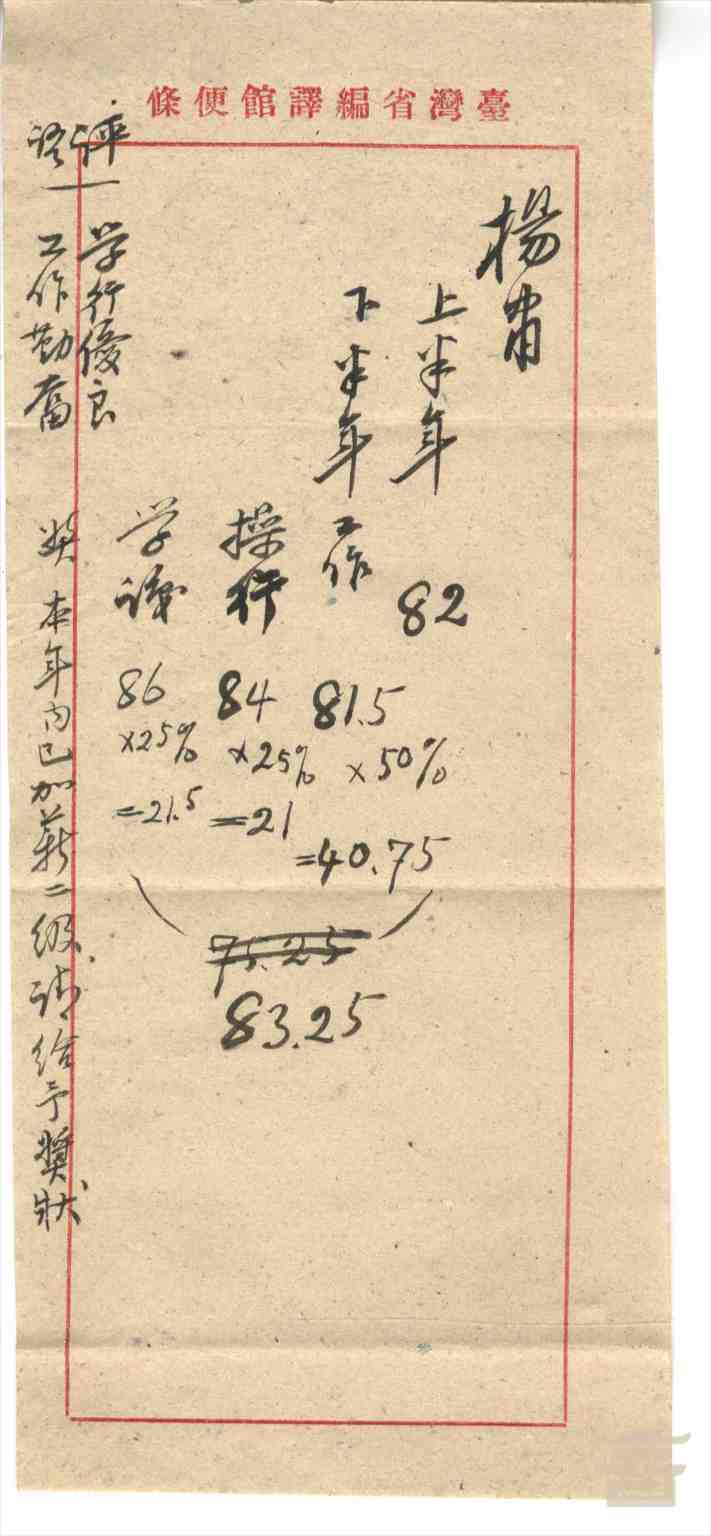 臺灣省編譯館便條
楊肅
上半年 82
下半年 工作 81.5 ×50% =40.75
操行 84 ×25% =21
学識 86 ×25% =21.5
75.25
83.25
評語 学行優良
工作勤奮
獎 本年內已加薪二級請給予獎狀